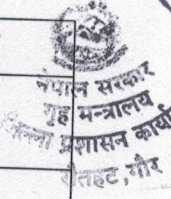 नेपाल सरकार
गृह मन्त्रालय
जिल्ला प्रशासन कार्या
रौतहट, गौर